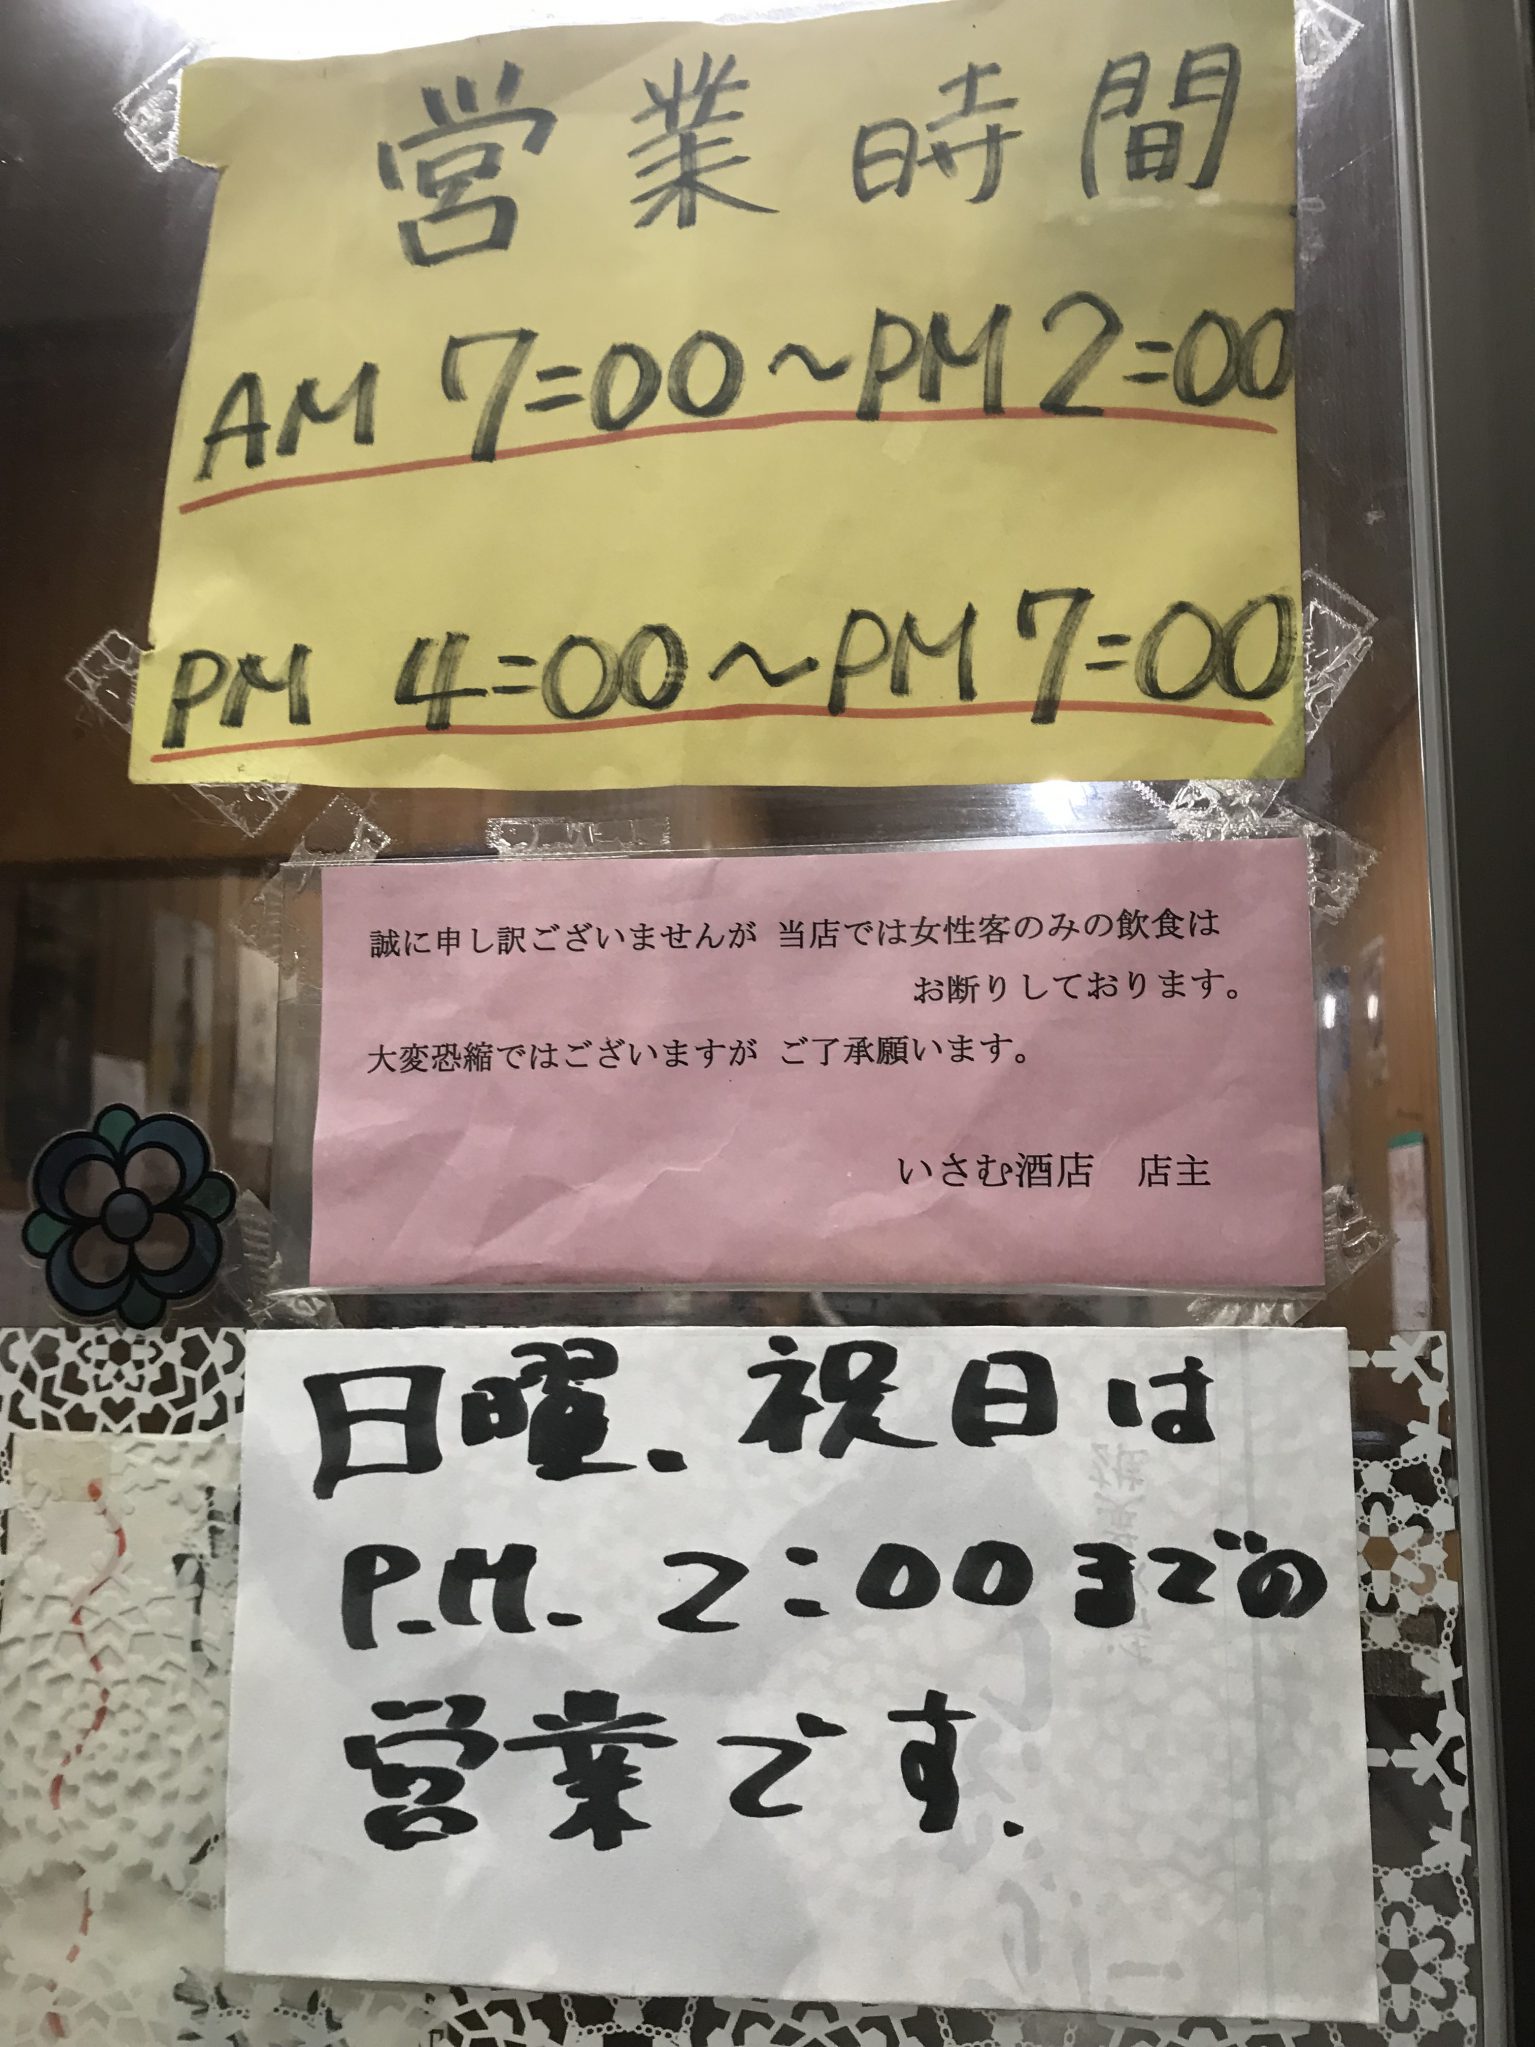 営業時間
AM 7:00～PM 2:00
PM 4:00～PM 7:00
誠に申し訳ございませんが 当店では女性客のみの飲食は
お断りしております。
大変恐縮ではございますが ご了承願います。
いさむ酒店 店主
日曜、祝日は
P.M. 2:00までの
営業です.